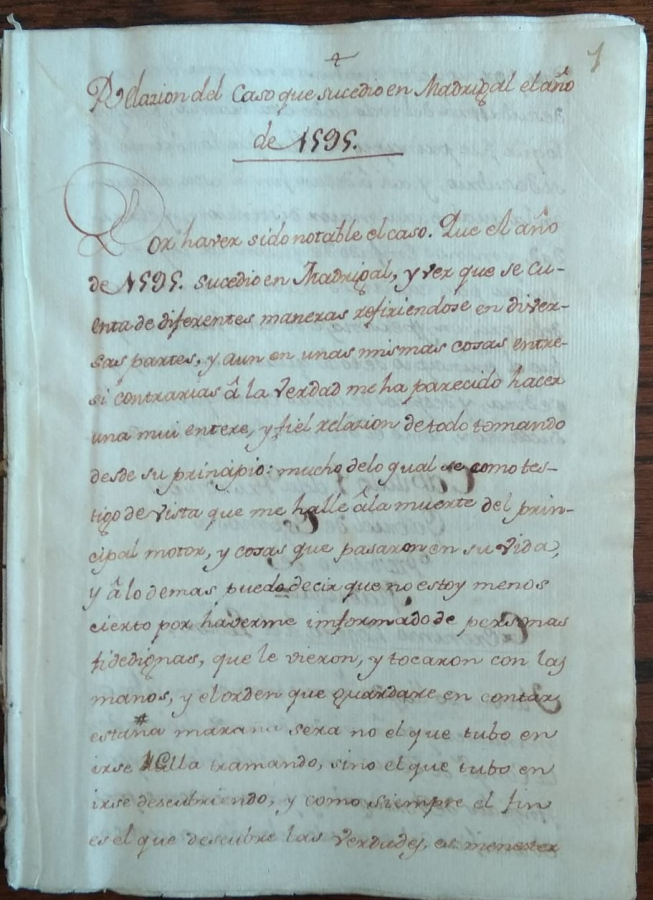 1
Relazion del Caso que sucedio en Madrigal el año
de 1595.
Por haver sido notable el caso. Que el año
de 1595. sucedio en Madrigal, y ver que se cu-
enta de diferentes maneras refiriendose en diver-
sas partes, y aun en unas mismas cosas entre-
si contrarias â la verdad me ha parecido hacer
una mui entere, y fiel relazion de todo tomando
desde su principio: mucho delo qual se como tes-
tigo de vista que me halle âla muerte del prin-
cipal motor, y cosas que pasaron en su vida,
y âlo demas puedo decir que no estoy menos
cierto por haverme informado de personas
fidedignas, que le vieron, y tocaron con las
manos, y el orden que guardare en contar
esta maraña sera no el que tubo en
irse tramando, sino el que tubo en
irse descubriendo, y como siempre el fin
es el que descubre las verdades, es menester